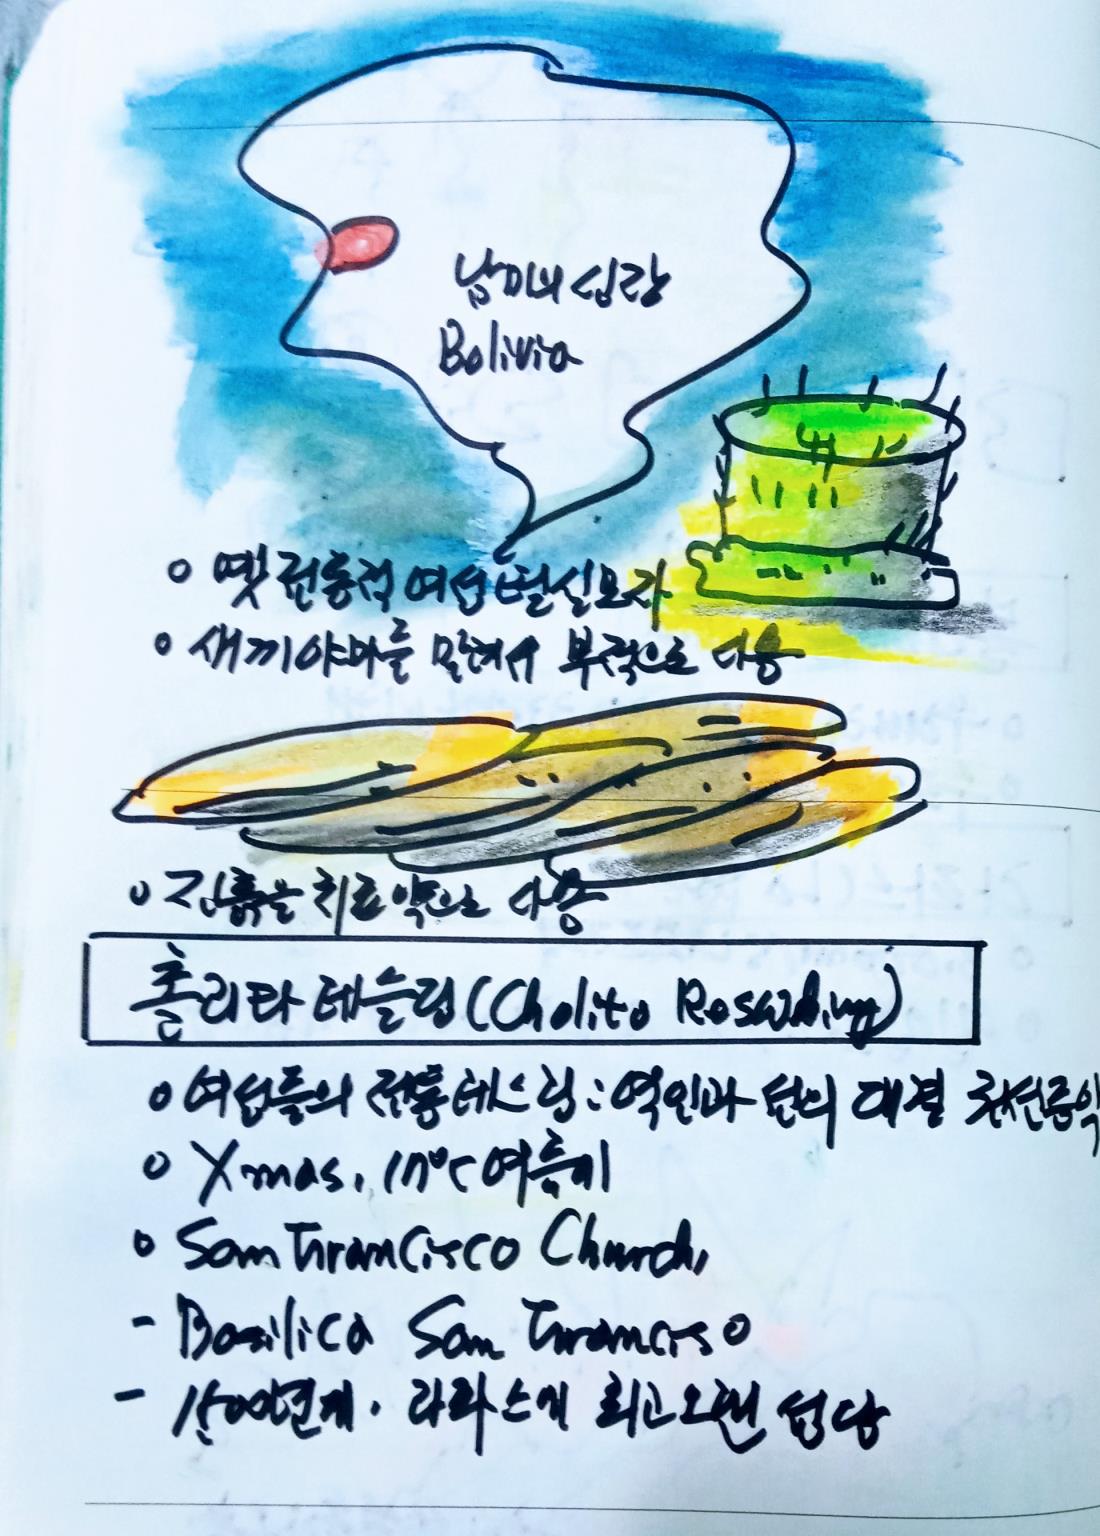 남미의 심장
Bolivia
o 옛 전통적 여성 털실모자
o 새끼야마를 말려서 부적으로 사용
o 진흙을 치료약으로 사용
촐리타 레슬링(Cholita
o 여성들의 전통레스링: 악인과 선의 대결
o Xmas. 여름이
o San Francisco Church,
- Basilica San Franciso
- 1500년계. 라파스에 최고오랜 성당